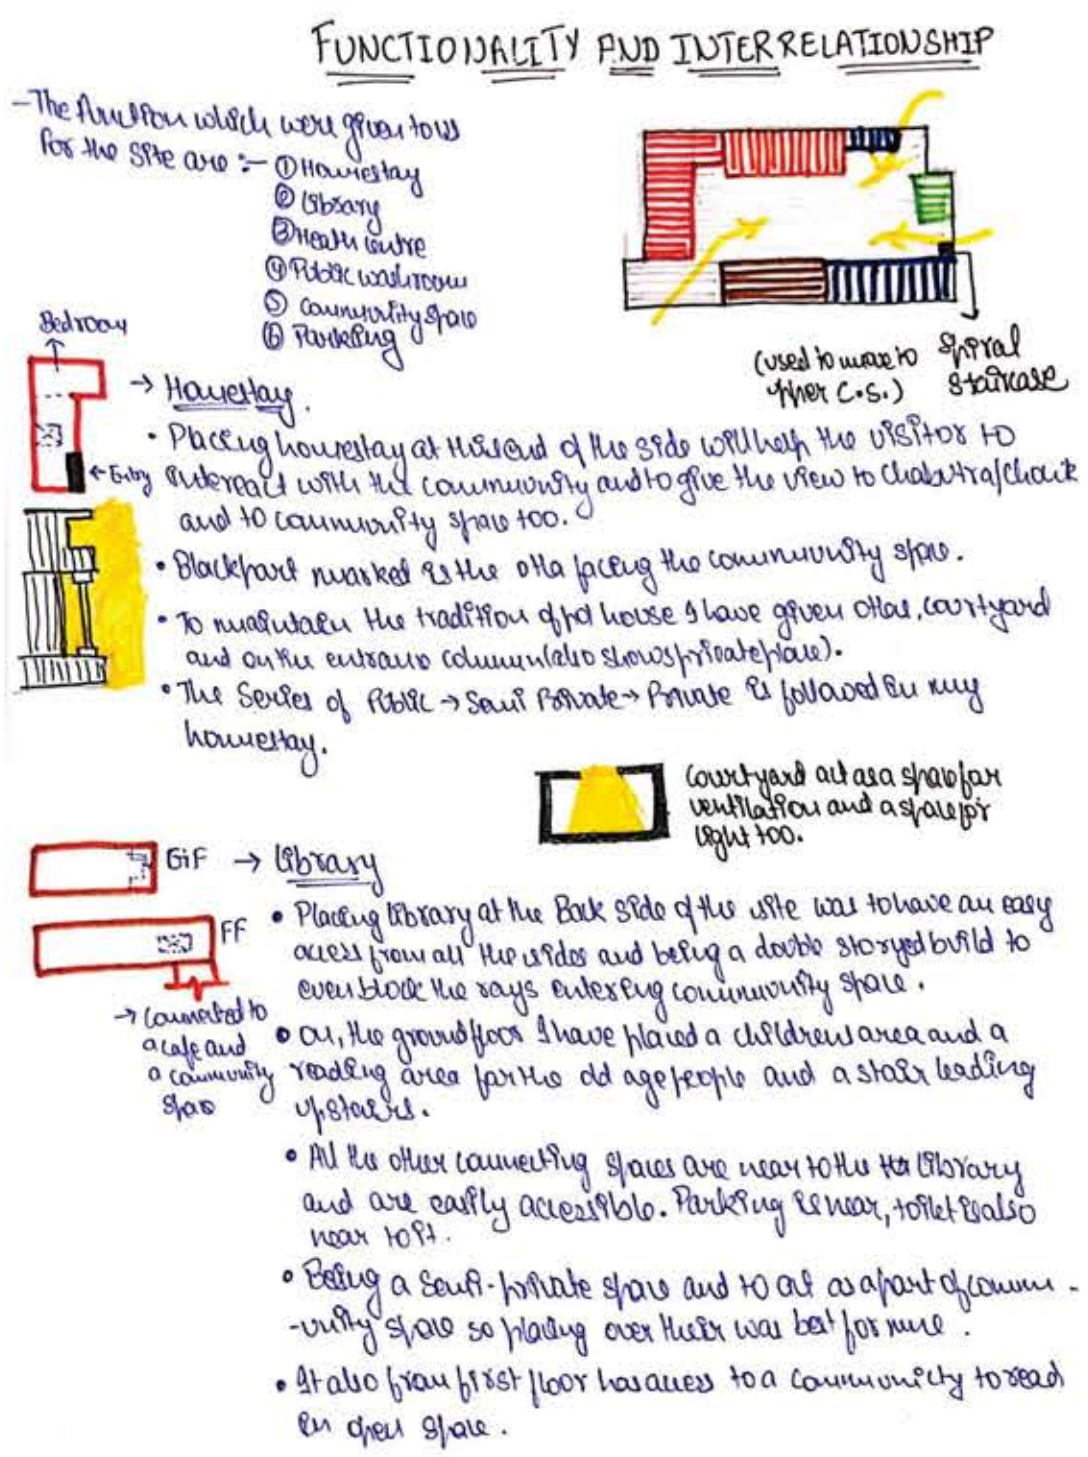 FUNCTIONALITY AND INTERRELATIONSHIP
- The function which were given to us
for the site are :-
① Homestay
② Library
③ Heath centre
④ Public washroom
⑤ Community space
⑥ Parking
(used to move to
upper C.S.)
Spiral
staircase
Bedroom
← Entry
→ Homestay.
• Placing homestay at this end of the side will help the visitor to
intereact with the community and to give the view to chabutra/chowk
and to community space too.
• Black part marked is the otla facing the community space.
• To maintain the tradition of pol house I have given otla, courtyard
and on the entrance column (also shows private place).
• The Series of Public → Semi Private → Private is followed in my
homestay.
Courtyard act as a space for
ventilation and a space for
light too.
G.F
FF
→ connected to
a cafe and
a community
space
→ Library
• Placing library at the Back side of the site was to have an easy
access from all the sides and being a double storyed build to
even block the rays entering community space.
• On, the ground floor I have placed a childrens area and a
reading area for the old age people and a stair leading
upstairs.
• All the other connecting spaces are near to the library
and are easily accessible. Parking is near, toilet is also
near to it.
• Being a semi-private space and to act as a part of comm-
-unity space so placing over their was best for mine.
• It also from first floor has access to a community to read
in open space.